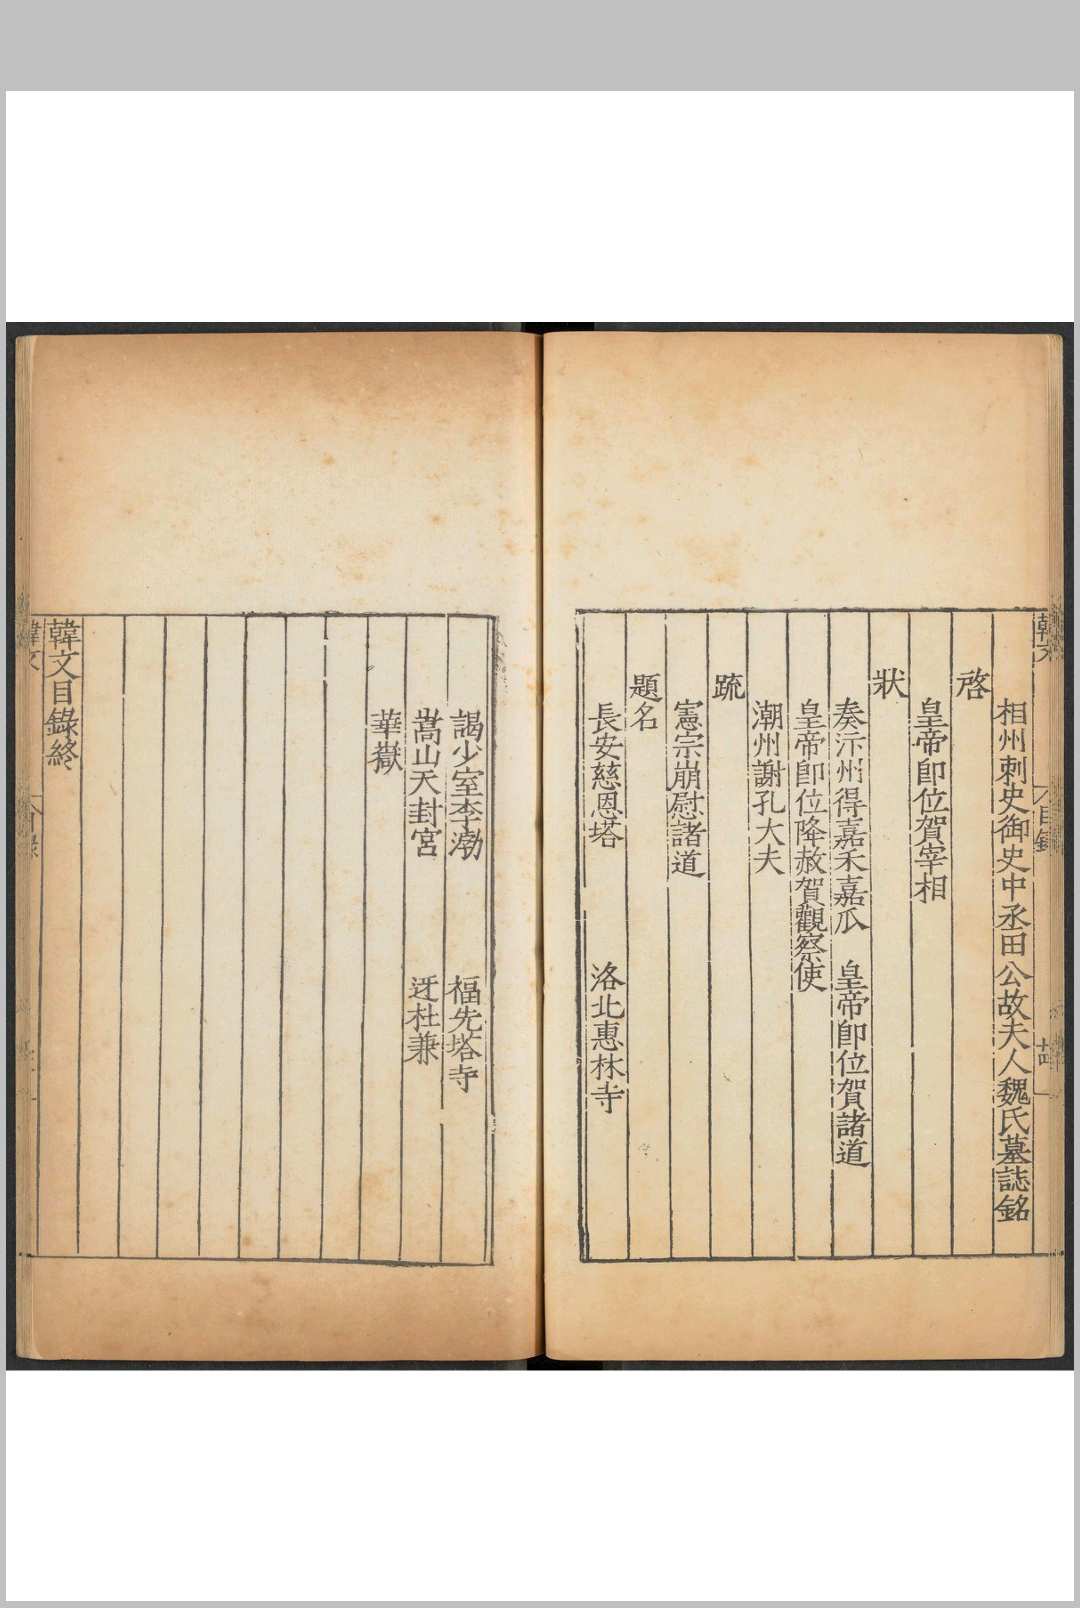 韓文 目錄
相州刺史御史中丞田公故夫人魏氏墓誌銘
啓
皇帝卽位賀宰相
狀
奏汴州得嘉禾嘉瓜 皇帝卽位賀諸道
皇帝卽位降赦賀觀察使
潮州謝孔大夫
疏
憲宗崩慰諸道
題名
長安慈恩塔 洛北惠林寺
謁少室李渤 福先塔寺
嵩山天封宮 迓杜兼
華嶽
韓文目錄終
韓文 目錄